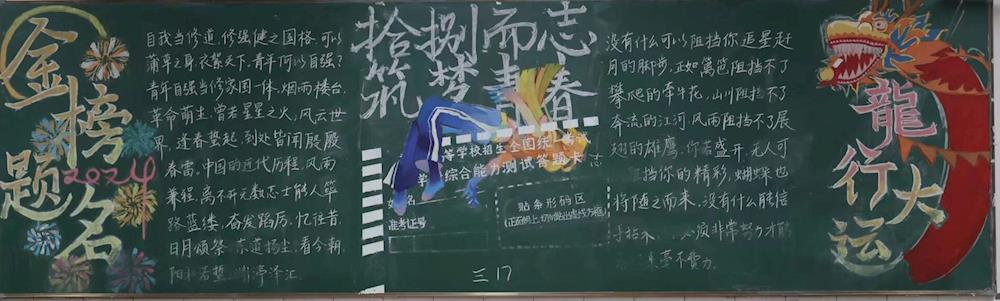 金榜题名
2024
自我当修道,修强健之国格,可以
蒲草之身,衣袂天下,青年何以自强?
青年自强当修家国一体,烟雨楼台,
革命萌生,曾若星星之火,风云世
界,逢春蛰起,到处皆闻殷殷
春雷,中国的近代历程,风雨
兼程,离不开无数志士能人筚
路蓝缕,奋发蹈厉,忆往昔
日月颂祭,东道扬尘,看今朝,
拾捌而志
筑梦青春
等学校招生全国统一考试
综合能力测试答题卡
准考证号
贴条形码区
三17
没有什么可以阻挡你追星赶
月的脚步,正如篱笆阻挡不了
攀爬的牵牛花,山川阻挡不了
奔流的江河,风雨阻挡不了展
翅的雄鹰,你若盛开,无人可
挡你的精彩,蝴蝶也
将随之而来,没有什么能信
手拈来,必须非常努力才能
毫不费力。
龍行大运